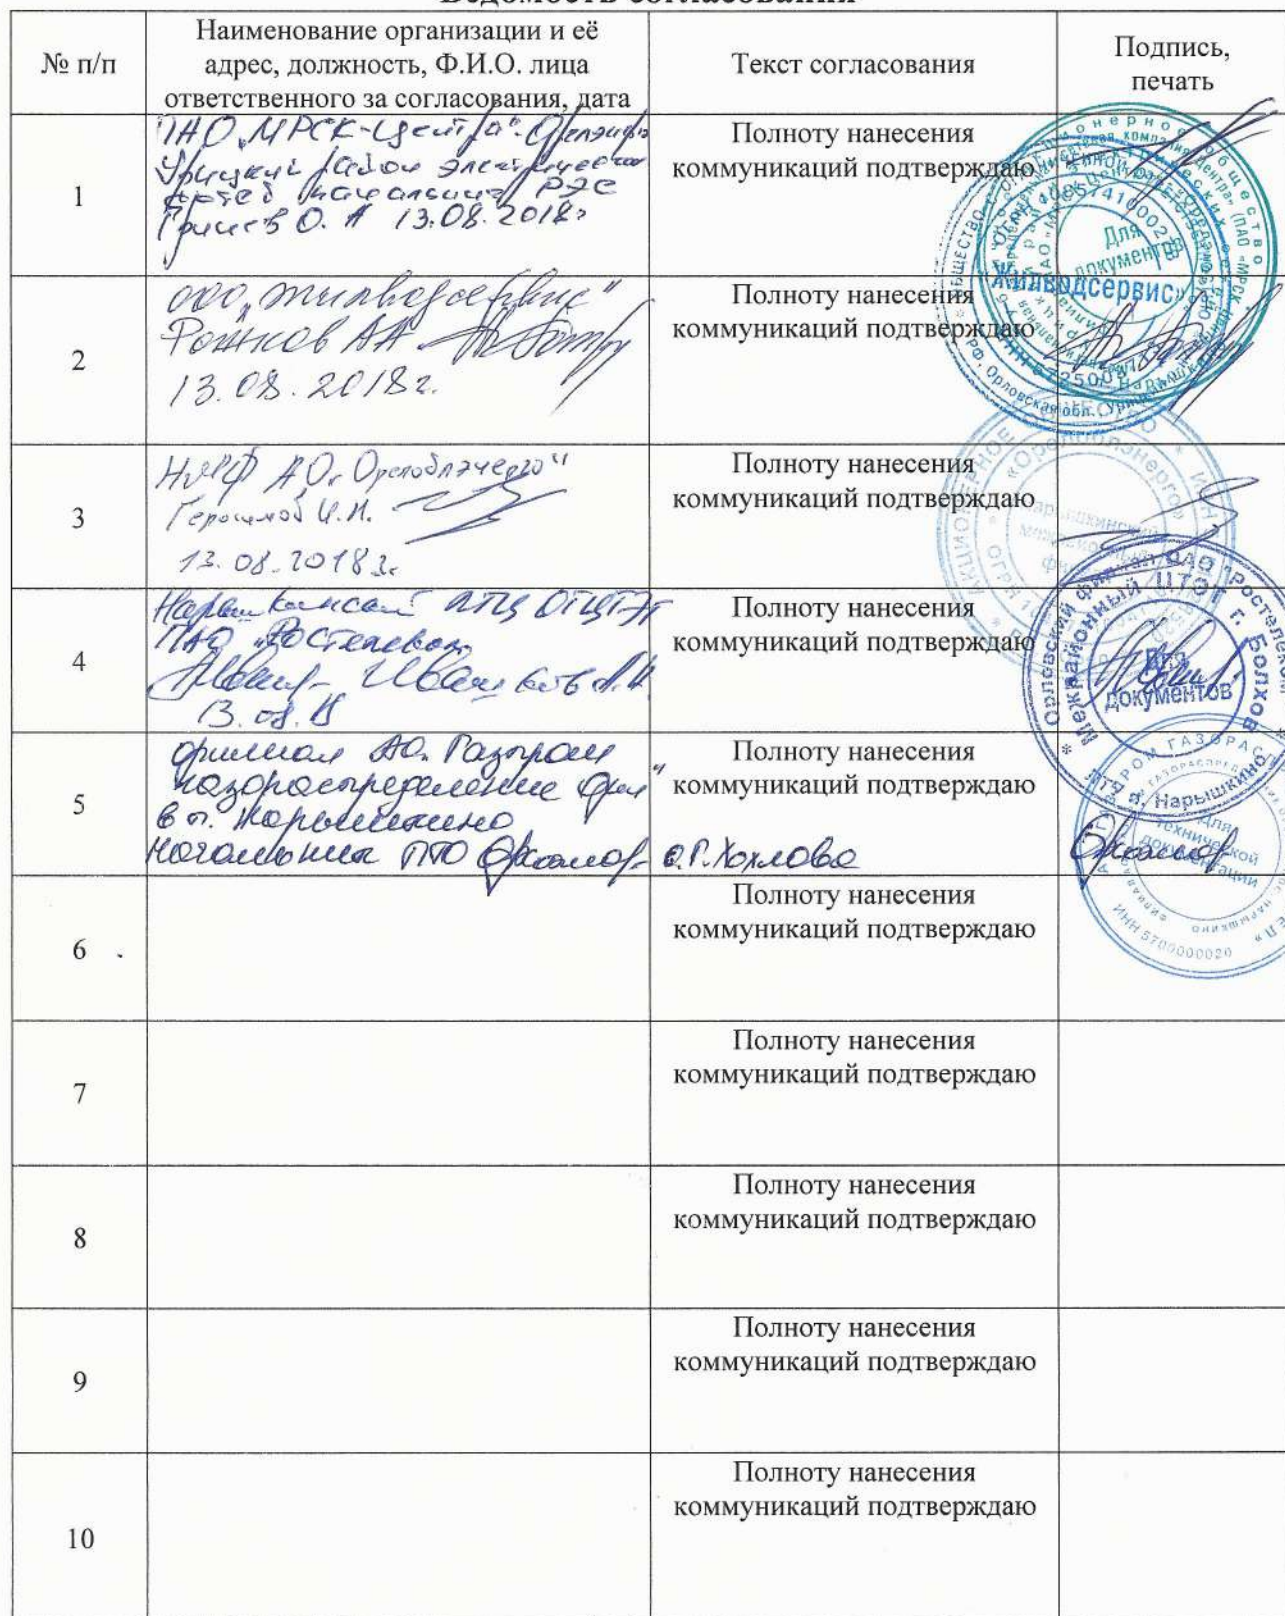 Ведомость согласования
№ п/п
Наименование организации и её
адрес, должность, Ф.И.О. лица
ответственного за согласования, дата
Текст согласования
Подпись,
печать
1
ПАО "МРСК-Центра"-Орёлэнерго
Урицкий район электрических
сетей начальник РЭС
О. А 13.08.2018г
Полноту нанесения
коммуникаций подтверждаю
Для
документов
"Жилводсервис"
2
ООО "Жилводсервис"
Рожков АА
13.08.2018г.
Полноту нанесения
коммуникаций подтверждаю
3
НМФ АО "Орелоблэнерго"
Герасимов И.Н.
13.08.2018г.
Полноту нанесения
коммуникаций подтверждаю
4
ПАО "Ростелеком"
13.08.18
Полноту нанесения
коммуникаций подтверждаю
Орловский филиал ОАО "Ростелеком"
Межрайонный ЦТОТ г. Болхов
Для
документов
ЛТУ п. Нарышкино
5
филиал АО "Газпром
газораспределение Орел"
в п. Нарышкино
Начальник ПТО О.Г. Хохлова
Полноту нанесения
коммуникаций подтверждаю
Для
технической
документации
ИНН 5700000020
6
Полноту нанесения
коммуникаций подтверждаю
7
Полноту нанесения
коммуникаций подтверждаю
8
Полноту нанесения
коммуникаций подтверждаю
9
Полноту нанесения
коммуникаций подтверждаю
10
Полноту нанесения
коммуникаций подтверждаю